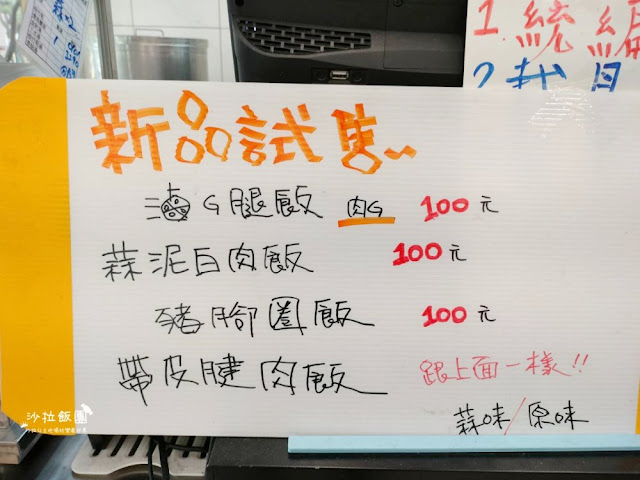 1. 統編
2. 載具
新品試售~
滷G腿飯 肉G 100元
蒜泥白肉飯 100元
豬腳圈飯 100元
帶皮腱肉飯 跟上面一樣!!
蒜味/原味
沙拉飯團